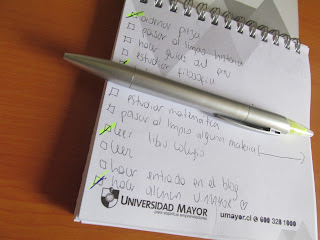 ordenar pieza
pasar al limpio historia
hacer guias del
estudiar filosofía
estudiar matemática
pasar al limpio alguna materia
leer libro colegio
leer
hacer entrada en el blog
hacer
UNIVERSIDAD MAYOR
para espíritus emprendedores
umayor.cl 600 328 1000